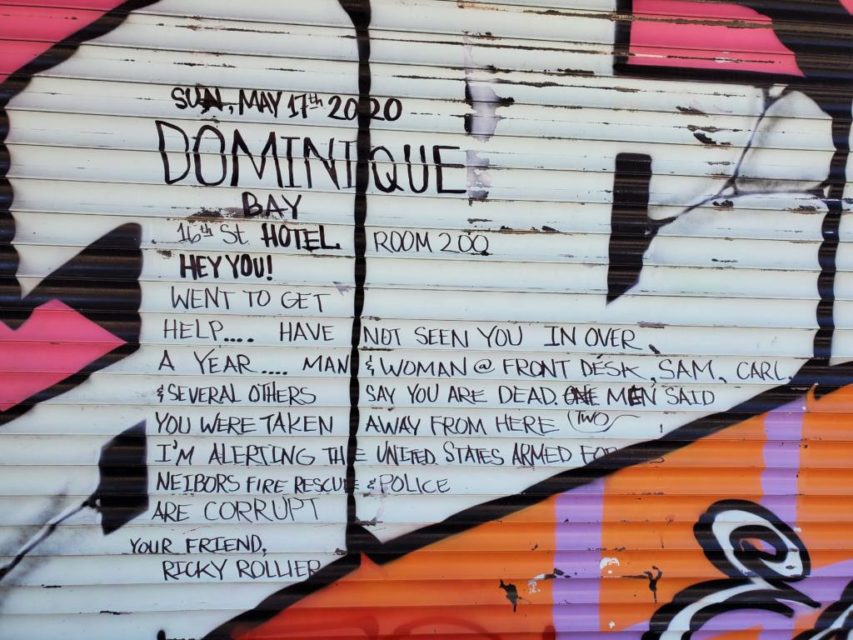 SUN, MAY 17th 2020
DOMINIQUE
BAY
16th St HOTEL ROOM 200
HEY YOU!
WENT TO GET
HELP.... HAVE NOT SEEN YOU IN OVER
A YEAR.... MAN & WOMAN @ FRONT DESK, SAM, CARL
& SEVERAL OTHERS SAY YOU ARE DEAD. MEN SAID
YOU WERE TAKEN AWAY FROM HERE (TWO
I'M ALERTING THE UNITED STATES ARMED
NEIBORS FIRE RESCUE & POLICE
ARE CORRUPT
YOUR FRIEND,
RICKY ROLLIER